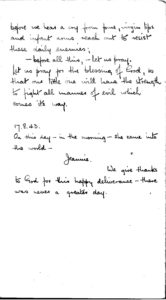 before we hear a cry from fond, virgin lips
and infant arms reach out to resist
these deadly enemies;
— before all this, — let us pray.
Let us pray for the blessing of God, so
that one little one will have the strength
to fight all manner of evil which
comes its way.
17.8.43.
On this day — in the morning — she came into
the world —
Jeannie.
We give thanks
to God for this happy deliverance — there
was never a greater day.